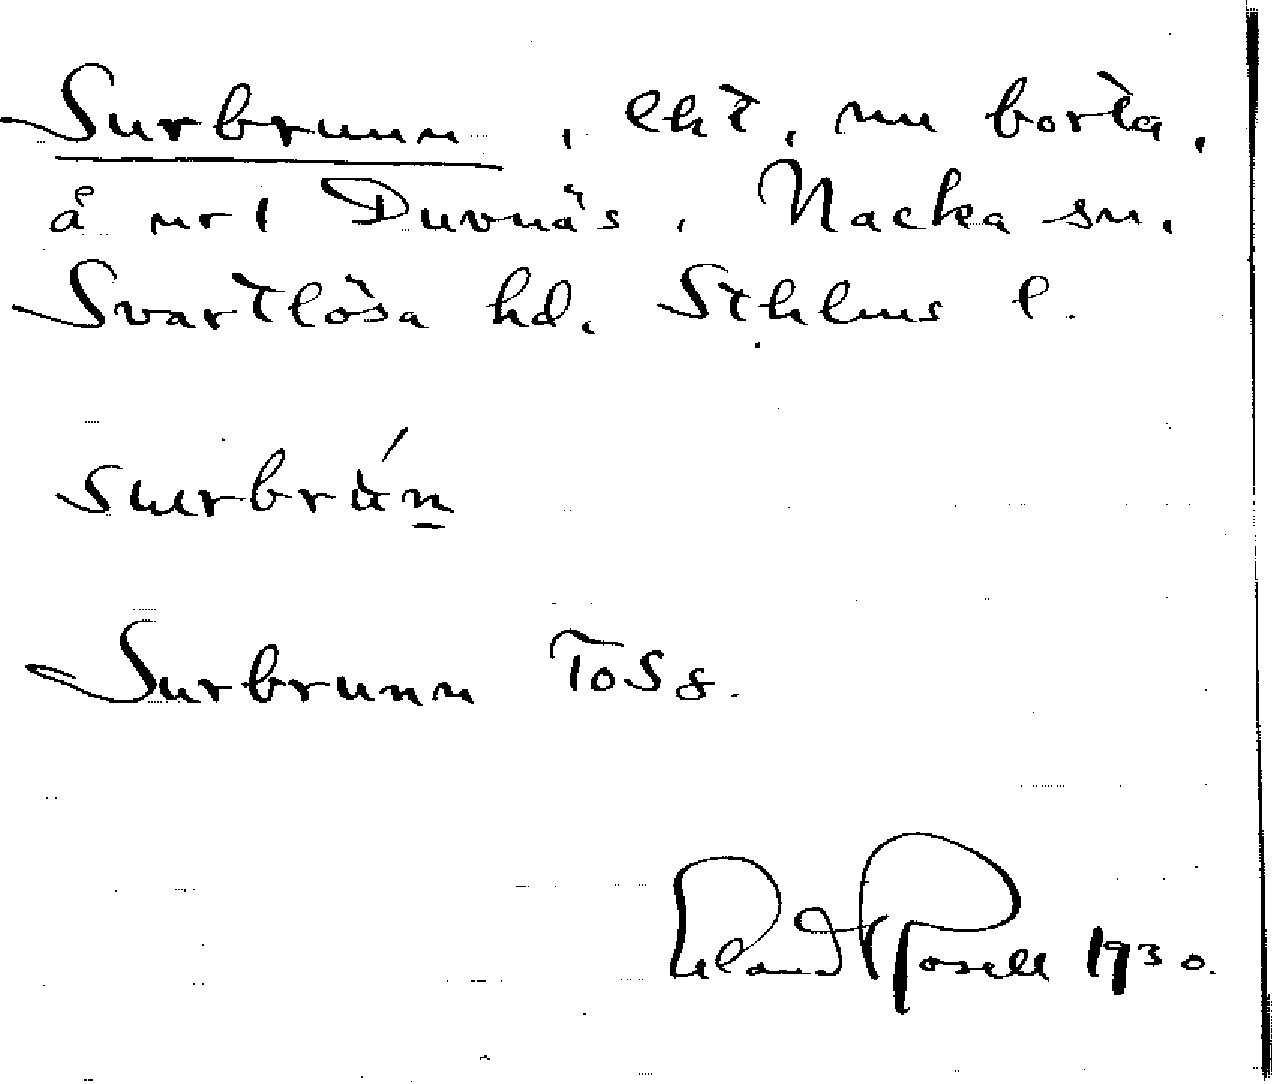 Surbrunn, lht, nu borta,
å nr 1 Duvnäs, Nacka sn.
Svartlösa hd. Sthlms l.
surbrún
Surbrunn ToS 8.
Rosell 1930.